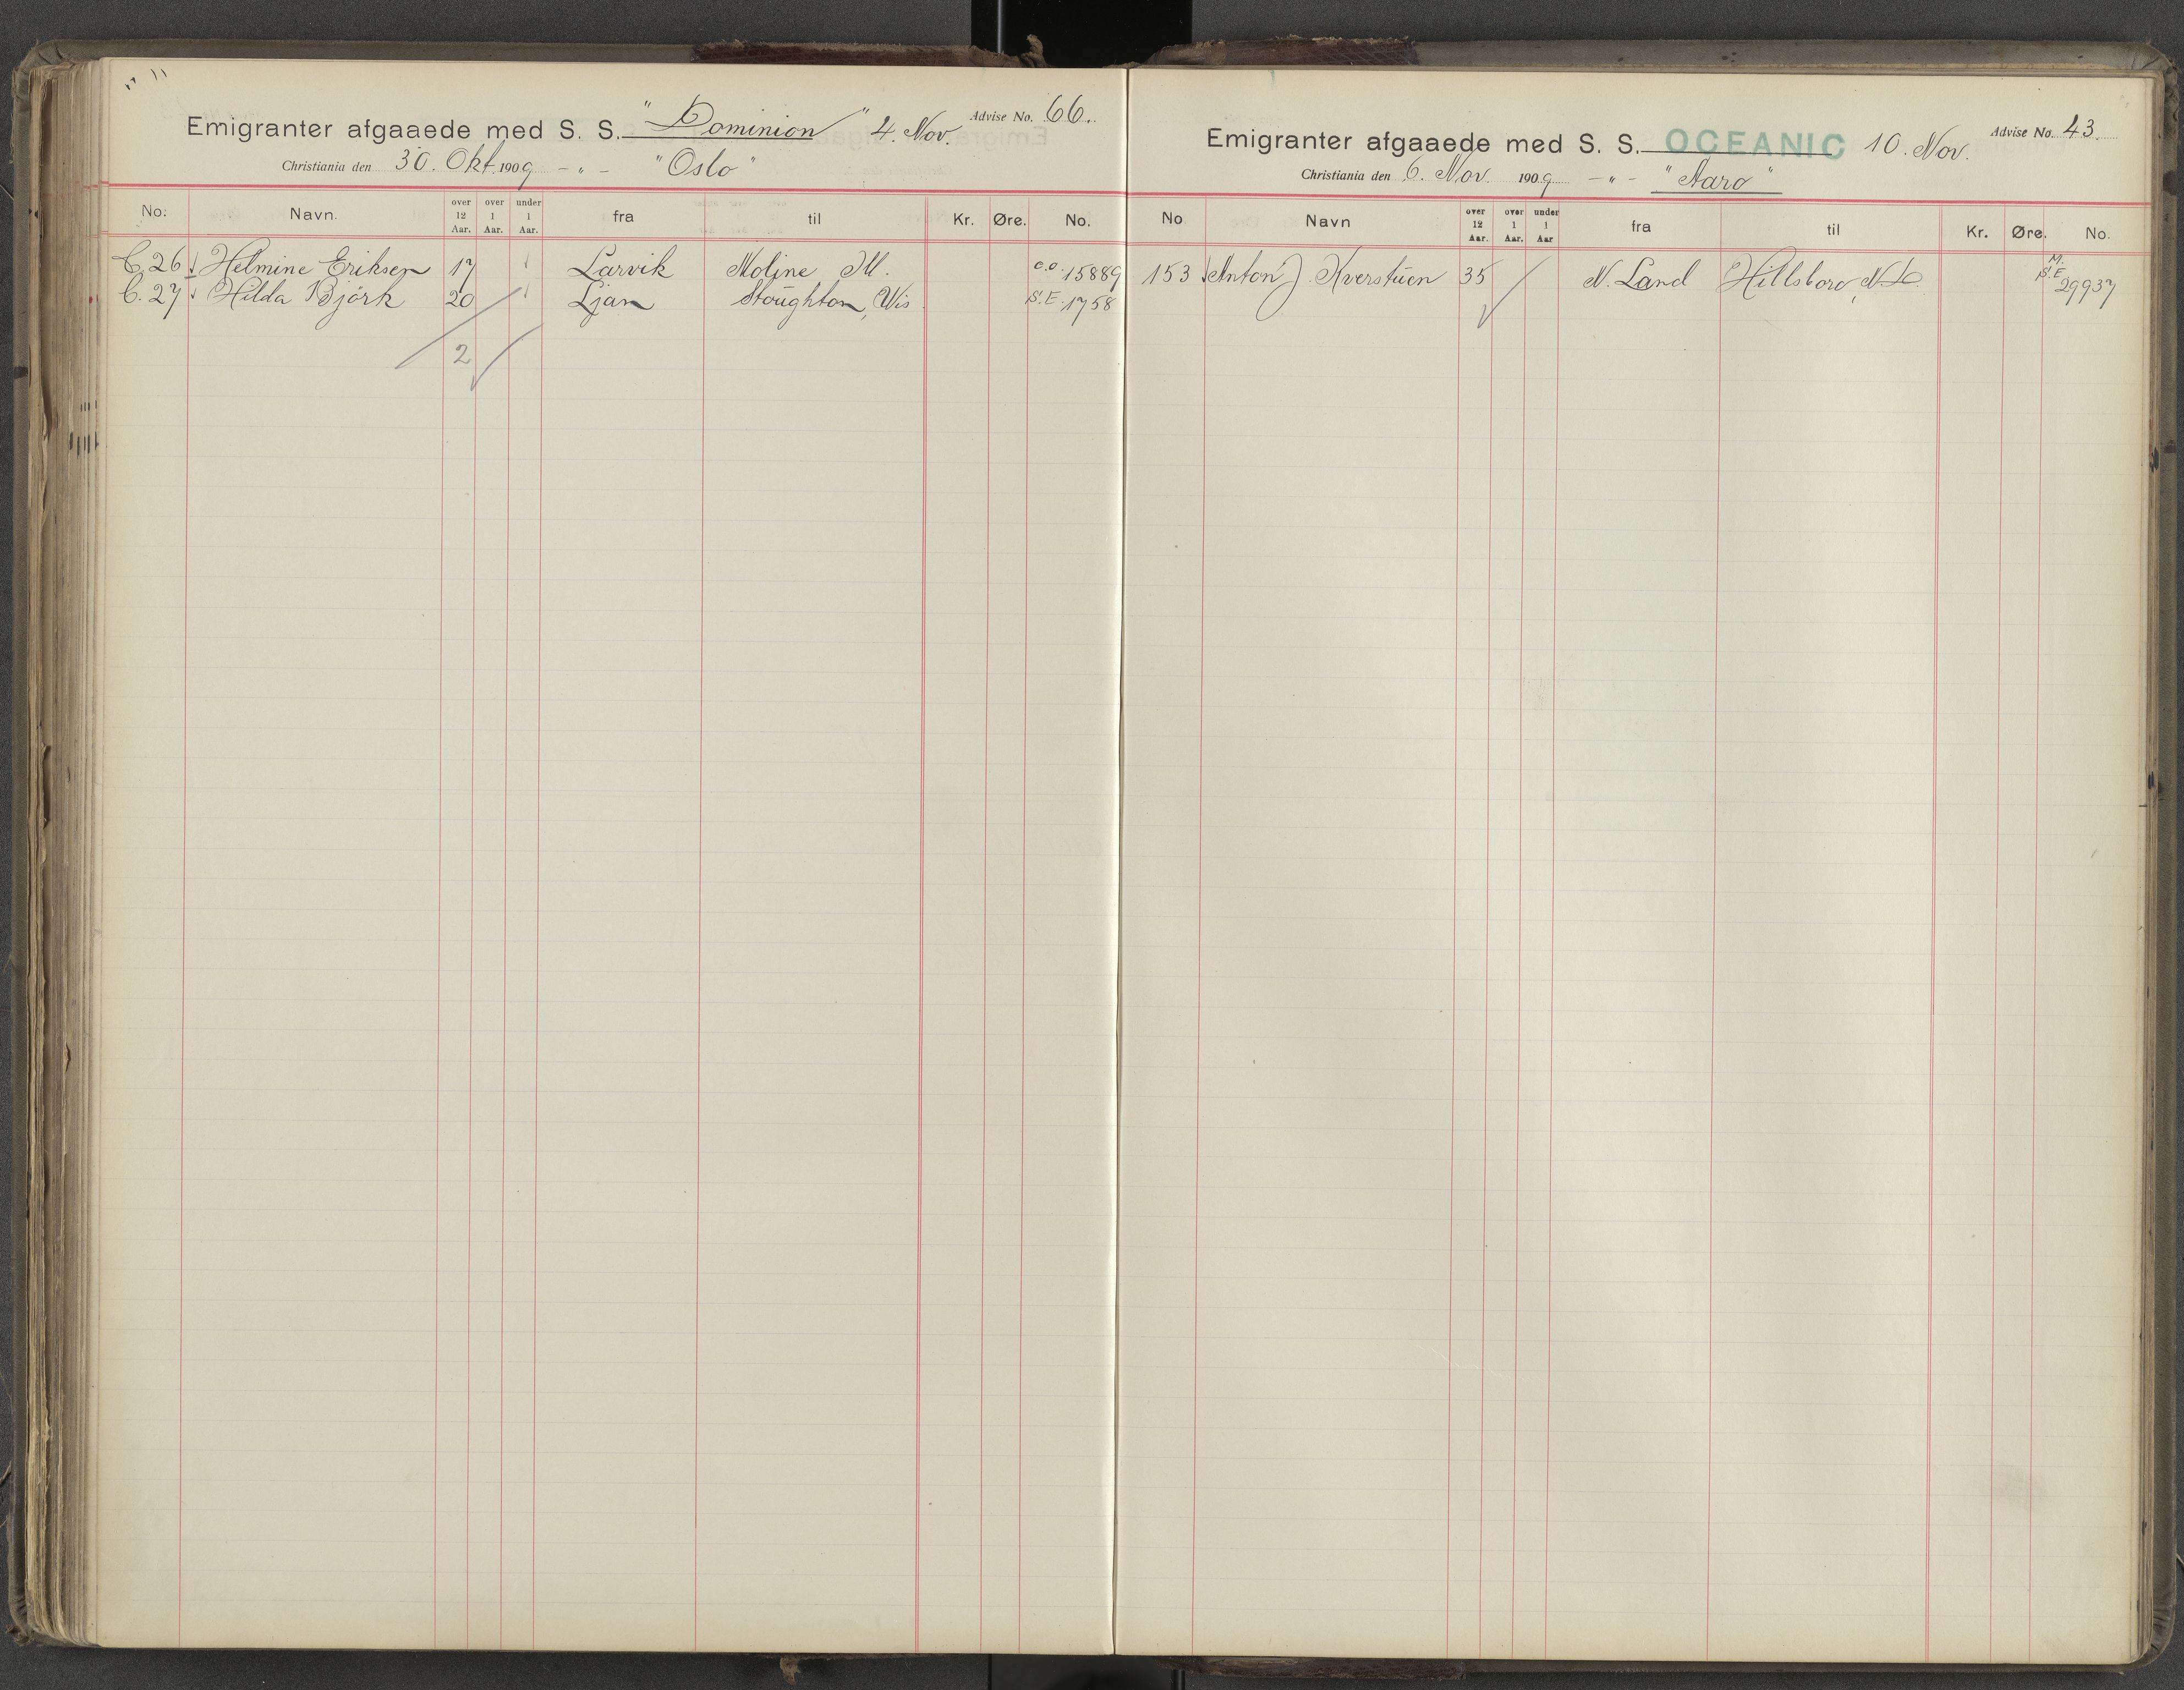 Emigranter afgaaede med S. S. "Dominion" 4. Nov. Advise No. 66.
Christiania den 30. Okt. 1909 -"- "Oslo"
No. Navn. over 12 Aar. over 1 Aar. under 1 Aar. fra til Kr. Øre. No.
C. 26 Helmine Eriksen 17 Larvik Moline Ill. c.o. 15889
C. 27 Hilda Björk 20 Ljan Stoughton, Wis. S.E. 1758
2
Emigranter afgaaede med S. S. OCEANIC 10. Nov. Advise No. 43.
Christiania den 6. Nov. 1909 -"- "Aaro"
No Navn over 12 Aar. over 1 Aar. under 1 Aar fra til Kr. Øre. No.
153 Anton J. Kverstuen 35 N. Land Hillsboro, N.D. M. S.E. 29937